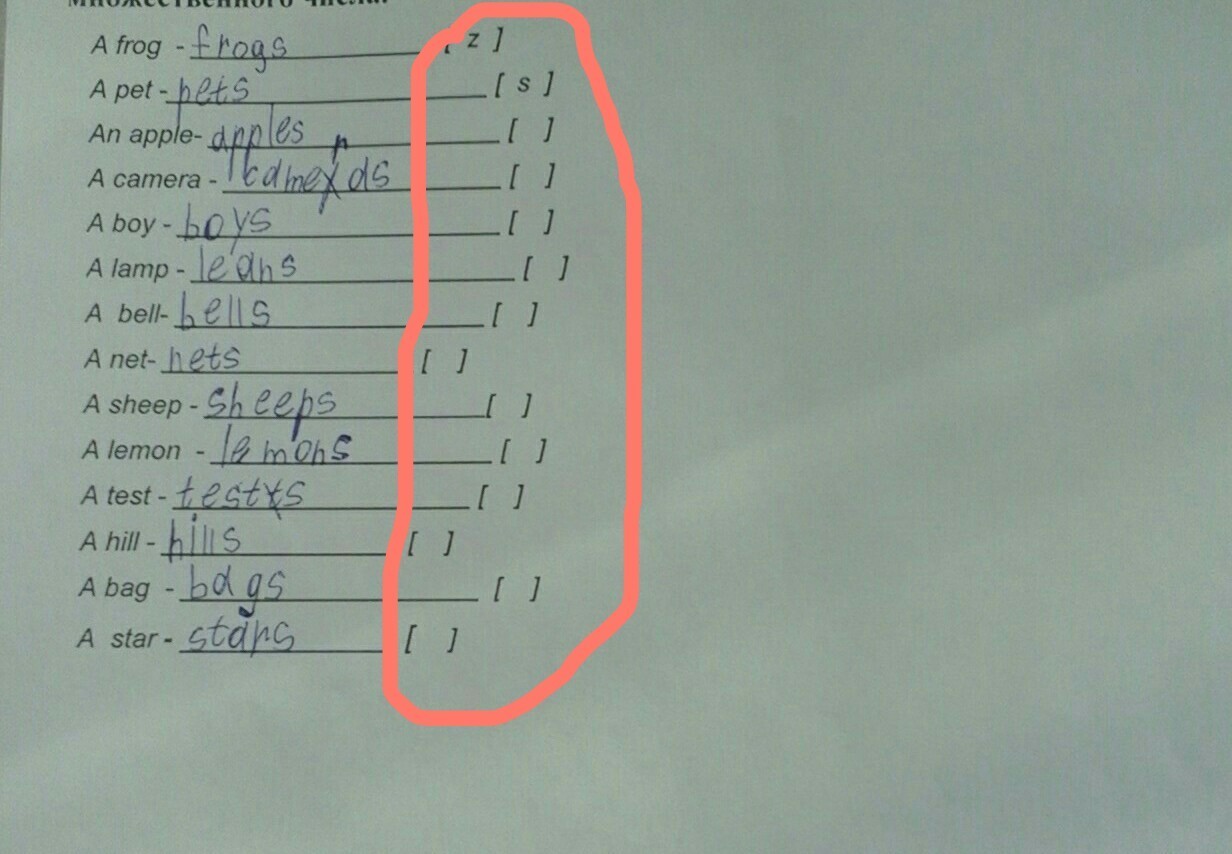 множественного числа.
A frog - frogs [ z ]
A pet - pets [ s ]
An apple- apples [ ]
A camera - [ ]
A boy - boys [ ]
A lamp - [ ]
A bell- bells [ ]
A net- nets [ ]
A sheep - sheeps [ ]
A lemon - lemons [ ]
A test - [ ]
A hill - hills [ ]
A bag - bags [ ]
A star - stars [ ]